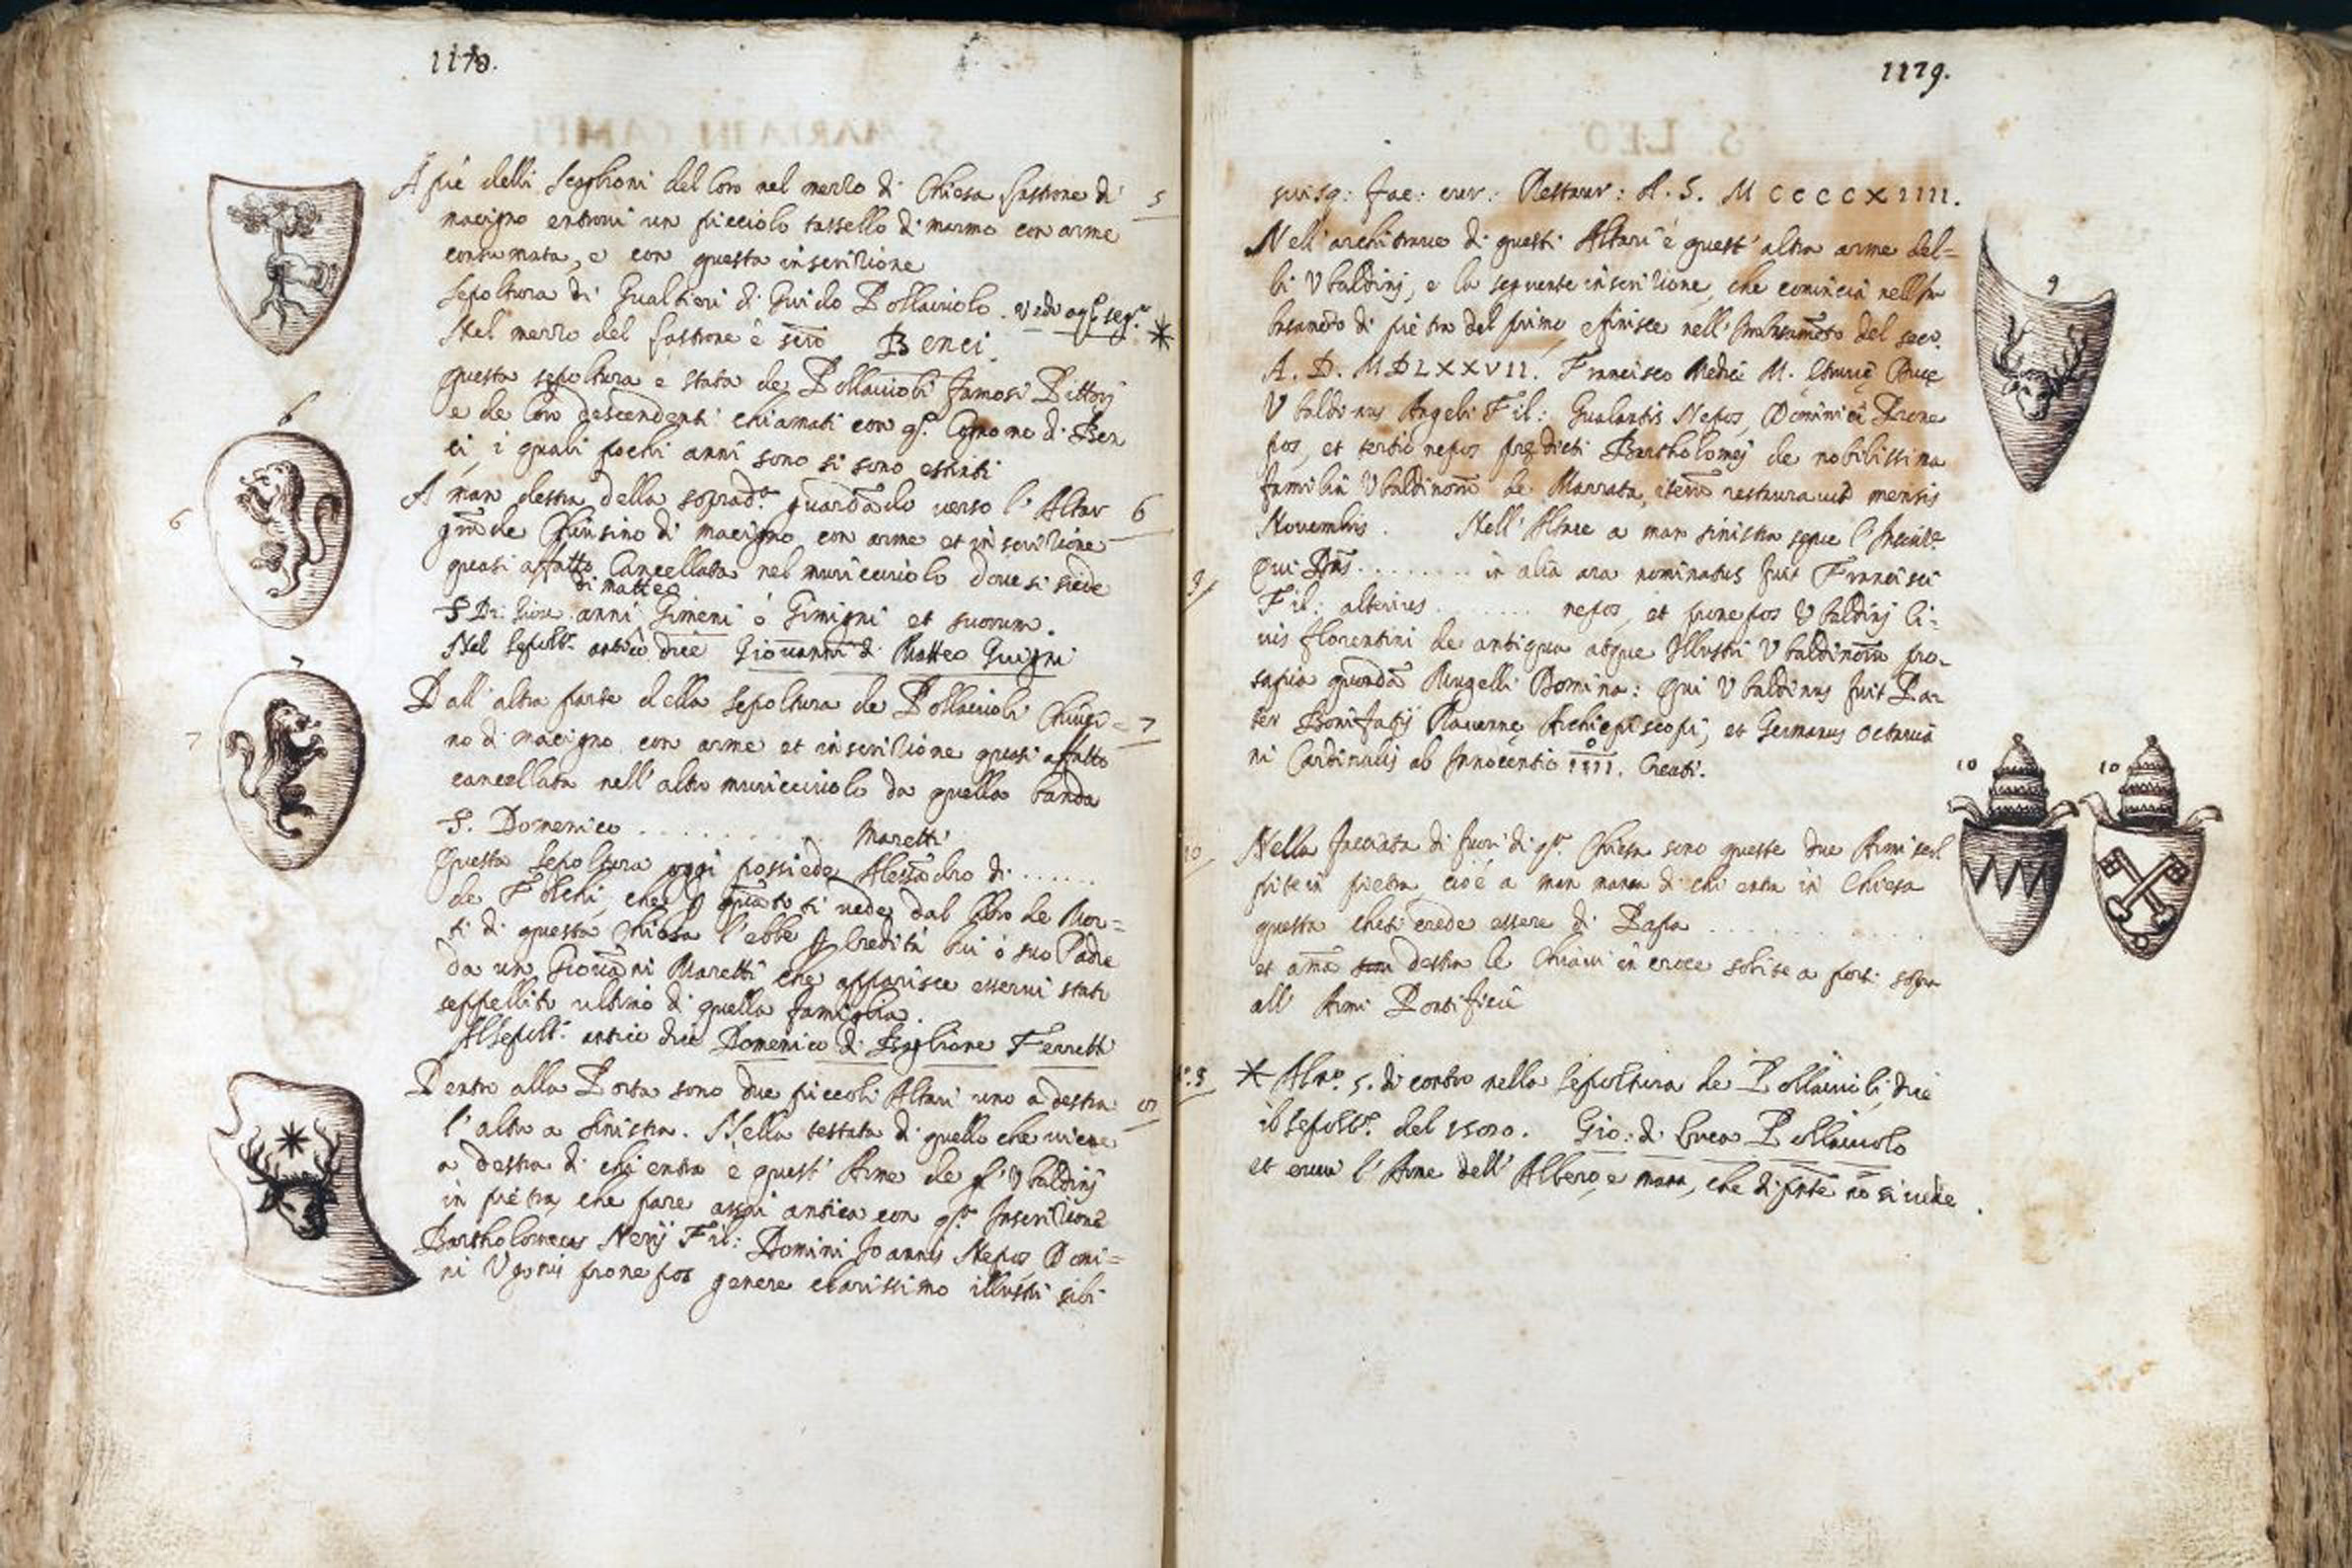 1178.
A piè delli Scaglioni del Coro nel mezzo di Chiesa lastrone di
macigno entrovi un picciolo tassello di marmo con arme
consumata, e con questa inscrizione
Sepoltura di Gualtieri di Guido Pollaiuolo. vedi
Nel mezzo del lastrone è Benci.
questa sepoltura è stata de Pollaiuoli famosi Pittori
e de loro descendenti chiamati con Cognome di Ben
ci, i quali pochi anni sono si sono estinti
A man destra della soprad.ª guardãdo verso l'Altar
Chiusino di macigno con arme et inscrizione
quasi affatto Cancellata nel muricciuolo dove si siede
di matteo
S. Di: Giov anni Gimeni ò Gimigni et suorum.
Nel Sepolt. antico dice Giovanni di Matteo Guigni
Dall'altra parte della Sepoltura de Pollaiuoli Chiusi=
no di macigno con arme et inscrizione quasi affatto
cancellata nell'altro muricciuolo da quella banda
S. Domenico . . . . . . . . . . Maretti
Questa Sepoltura oggi possiede Alessãdro di ......
de che si vede dal libro de Mor=
ti di questa Chiesa l'ebbe heredità lui ò suo Padre
da un Giovãni Maretti che apparisce esservi stato
seppellito ultimo di quella famiglia.
Al Sepolt. antico dice Domenico di Ferretti
Dentro alla Porta sono due piccoli Altari uno a destra
l'altro a sinistra. Nella testata di quello che viene
a destra di chi entra è quest'Arme de Ubaldinj
in pietra che pare assai antica con Inscrizione
Bartholomeus Nerij Fil: Domini Joannis Nepos Domi=
ni Ugonis pronepos genere clarissimo illustri sibi
5
6
7
6
6
7
7
1179.
suisq: fac: cur: Restaur: A. S. M C C C C X I I I I.
Nell'architrave di questi Altari è quest'altra arme del=
li Ubaldinj, e la seguente inscrizione, che comincia nell'
basamẽto di pietra del primo e finisce nell' del seco.
A. D. MDLXXVII. Francisco Medici M. Duce
Ubaldinus Angeli Fil: Nepos, Dominici Prone
pos, et tertio nepos prędicti Bartholomęj de nobilissima
familia Ubaldinorũ de Marrata, restauravit mensis
Novembris. Nell'Altare a man sinistra segue l'
Qui . . . . . . . . in alia ara nominatus fuit Francisci
Fil: alterius . . . . . . . nepos, et pronepos Ubaldinj Ci=
vis florentini de antiqua atque Illustri Ubaldinorũ pro=
sapia quondã Mugelli Domina: Qui Ubaldinus fuit Pa=
ter Bonifatij Ravennę Archiepiscopi, et Germanus Octavia
ni Cardinalis ab Innocentio IIII. Creati.
Nella facciata di fuori di Chiesa sono queste due Armi scol
pite in pietra, cioè a man manca di chi entra in Chiesa
questa che si crede essere di Papa . . . . . . . . . .
et destra le Chiavi in croce solite a porsi sopra
all' Armi Pontificie
* Al nº. 5. di contro nella Sepoltura de Pollaiuoli, dice
il Sepolt. del Gio: di Luca Pollaiuolo
et l'Arme dell'Albero, e mano, che nõ si vede.
9
10
9
10
10